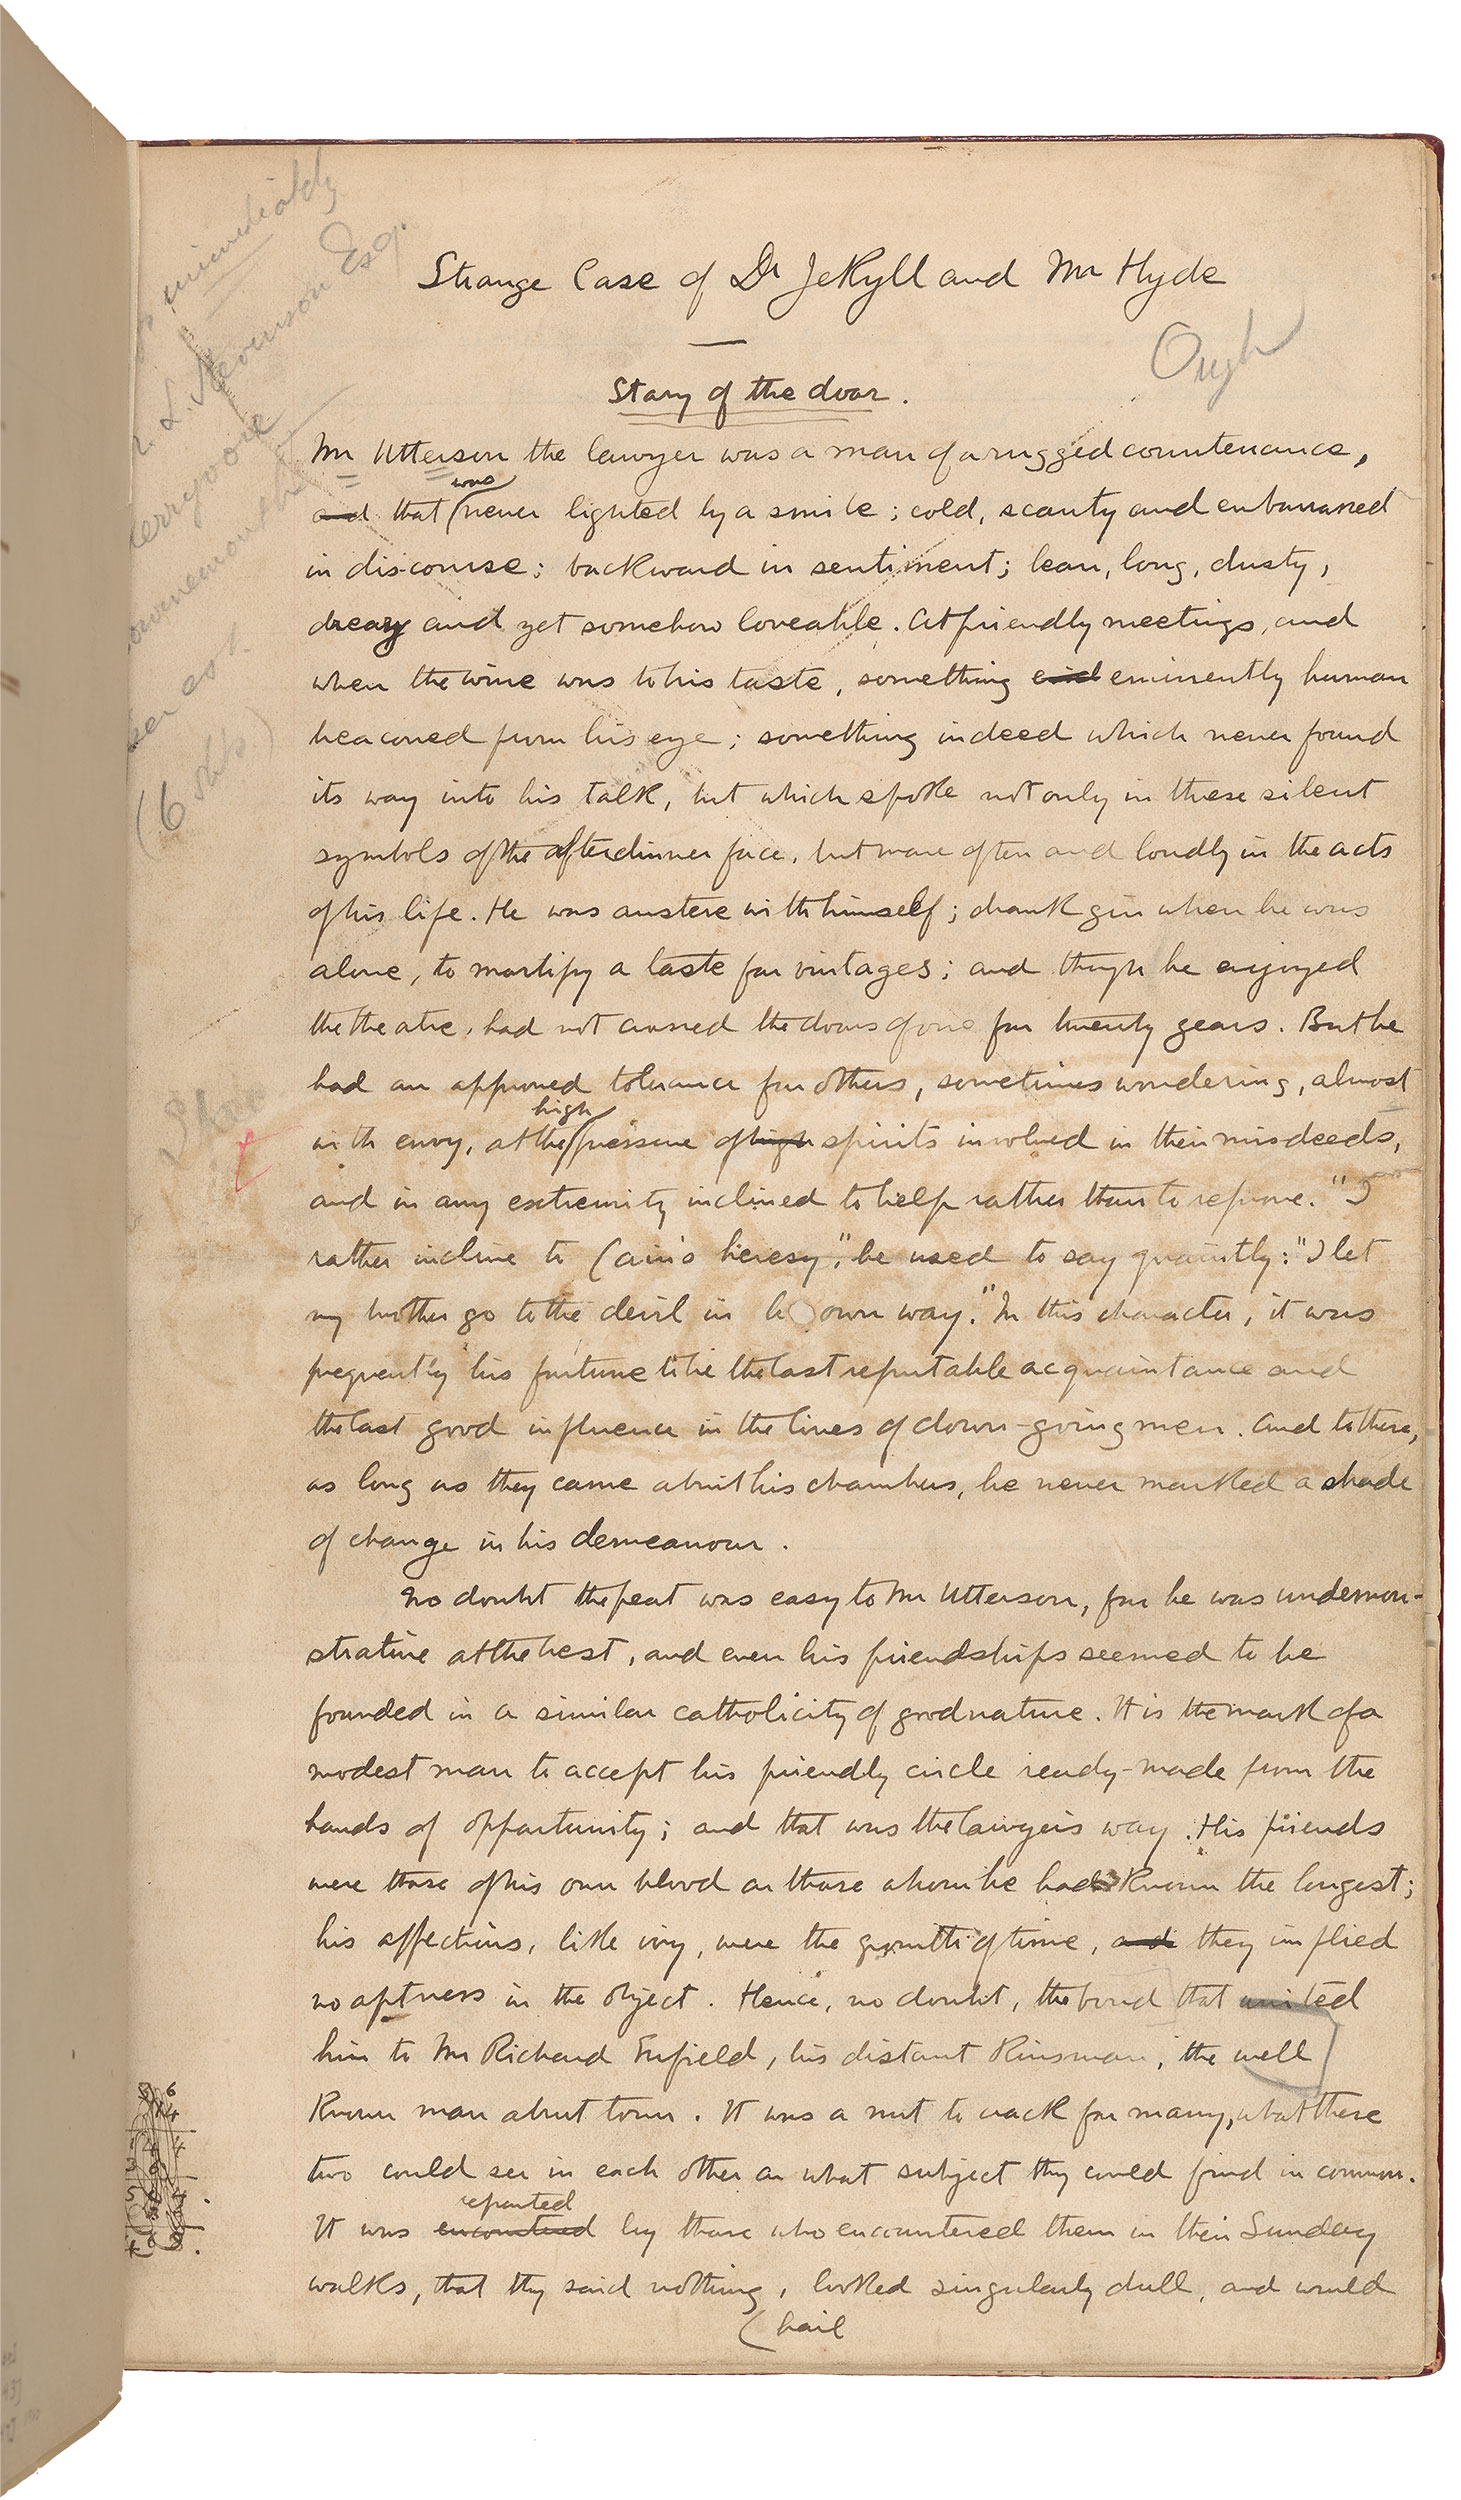 immediately
R. L. Stevenson Esq.
Skerryvore
Bournemouth
(6
Strange Case of Dr Jekyll and Mr Hyde
Ough
Story of the door.
Mr Utterson the lawyer was a man of a rugged countenance,
was
and that never lighted by a smile; cold, scanty and embarrassed
in discourse; backward in sentiment; lean, long, dusty,
dreary and yet somehow loveable. At friendly meetings, and
when the wine was to his taste, something eminently human
beaconed from his eye; something indeed which never found
its way into his talk, but which spoke not only in these silent
symbols of the afterdinner face, but more often and loudly in the acts
of his life. He was austere with himself; drank gin when he was
alone, to mortify a taste for vintages; and though he enjoyed
the theatre, had not crossed the doors of one for twenty years. But he
had an approved tolerance for others, sometimes wondering, almost
high
with envy, at the pressure of high spirits involved in their misdeeds,
and in any extremity inclined to help rather than to reprove. "I
rather incline to Cain's heresy," he used to say quaintly: "I let
my brother go to the devil in own way." In this character, it was
frequently his fortune to be the last reputable acquaintance and
the last good influence in the lives of down-going men. And to these,
as long as they came about his chambers, he never marked a shade
of change in his demeanour.
No doubt the feat was easy to Mr Utterson, for he was undemon-
strative at the best, and even his friendships seemed to be
founded in a similar catholicity of good nature. It is the mark of a
modest man to accept his friendly circle ready-made from the
hands of opportunity; and that was the lawyer's way. His friends
were those of his own blood or those whom he had known the longest;
his affections, like ivy, were the growth of time, and they implied
no aptness in the object. Hence, no doubt, the bond that united
him to Mr Richard Enfield, his distant kinsman, the well
known man about town. It was a nut to crack for many, what these
two could see in each other or what subject they could find in common.
reported
It was encountered by those who encountered them in their Sunday
walks, that they said nothing, looked singularly dull, and would
(hail